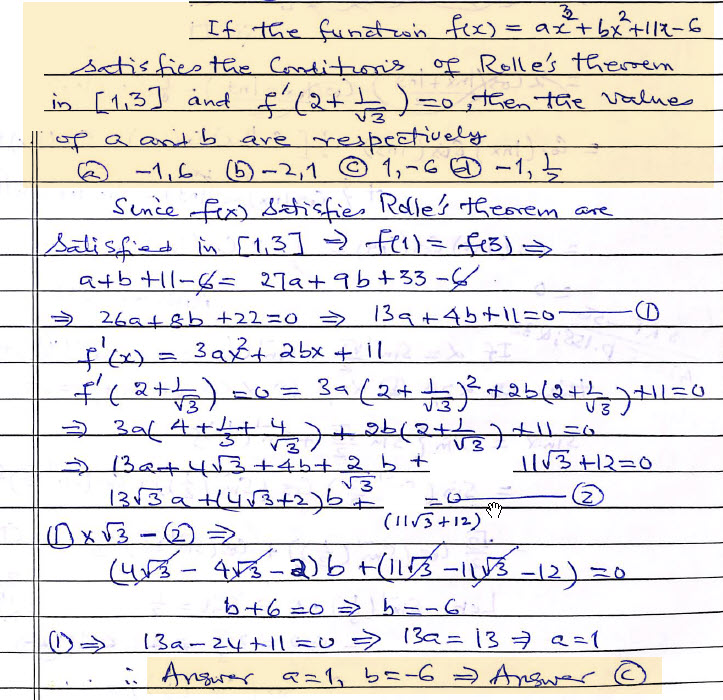 If the function f(x) = ax³+bx²+11x-6
satisfies the Conditions of Rolle's theorem
in [1,3] and f'(2+1/√3)=0, then the values
of a and b are respectively
(a) -1,6 (b) -2,1 (c) 1,-6 (d) -1, 1/2
Since f(x) satisfies Rolle's theorem are
satisfied in [1,3] ⇒ f(1) = f(3) ⇒
a+b+11-6 = 27a+9b+33-6
⇒ 26a+8b+22=0 ⇒ 13a+4b+11=0 — (1)
f'(x) = 3ax²+2bx+11
f'(2+1/√3) = 0 = 3a(2+1/√3)²+2b(2+1/√3)+11=0
⇒ 3a(4+1/3+4/√3)+2b(2+1/√3)+11=0
⇒ 13a+4√3+4b+2/√3 b+ 11√3+12=0
13√3a+(4√3+2)b+(11√3+12)=0 — (2)
(1)×√3-(2) ⇒
(4√3-4√3-2)b+(11√3-11√3-12)=0
b+6=0 ⇒ b=-6
(1) ⇒ 13a-24+11=0 ⇒ 13a=13 ⇒ a=1
∴ Answer a=1, b=-6 ⇒ Answer (c)